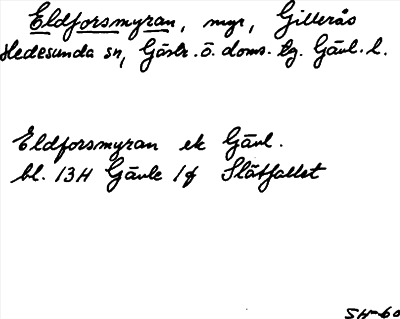 Eldforsmyran, myr, Gillerås
Hedesunda sn, Gästr. ö. doms. tg. Gävl. l.
Eldforsmyran ek Gävl.
bl. 13H Gävle 1f Slåtfallet
SH-60